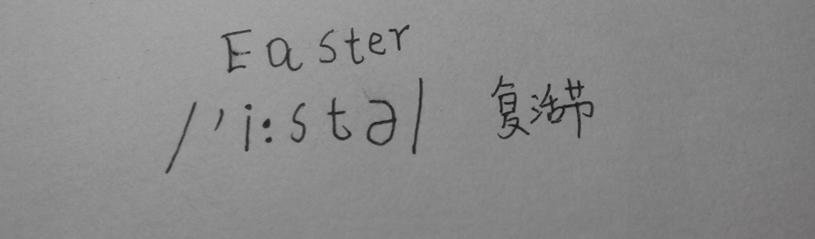 Easter
/'i:stə/ 复活节